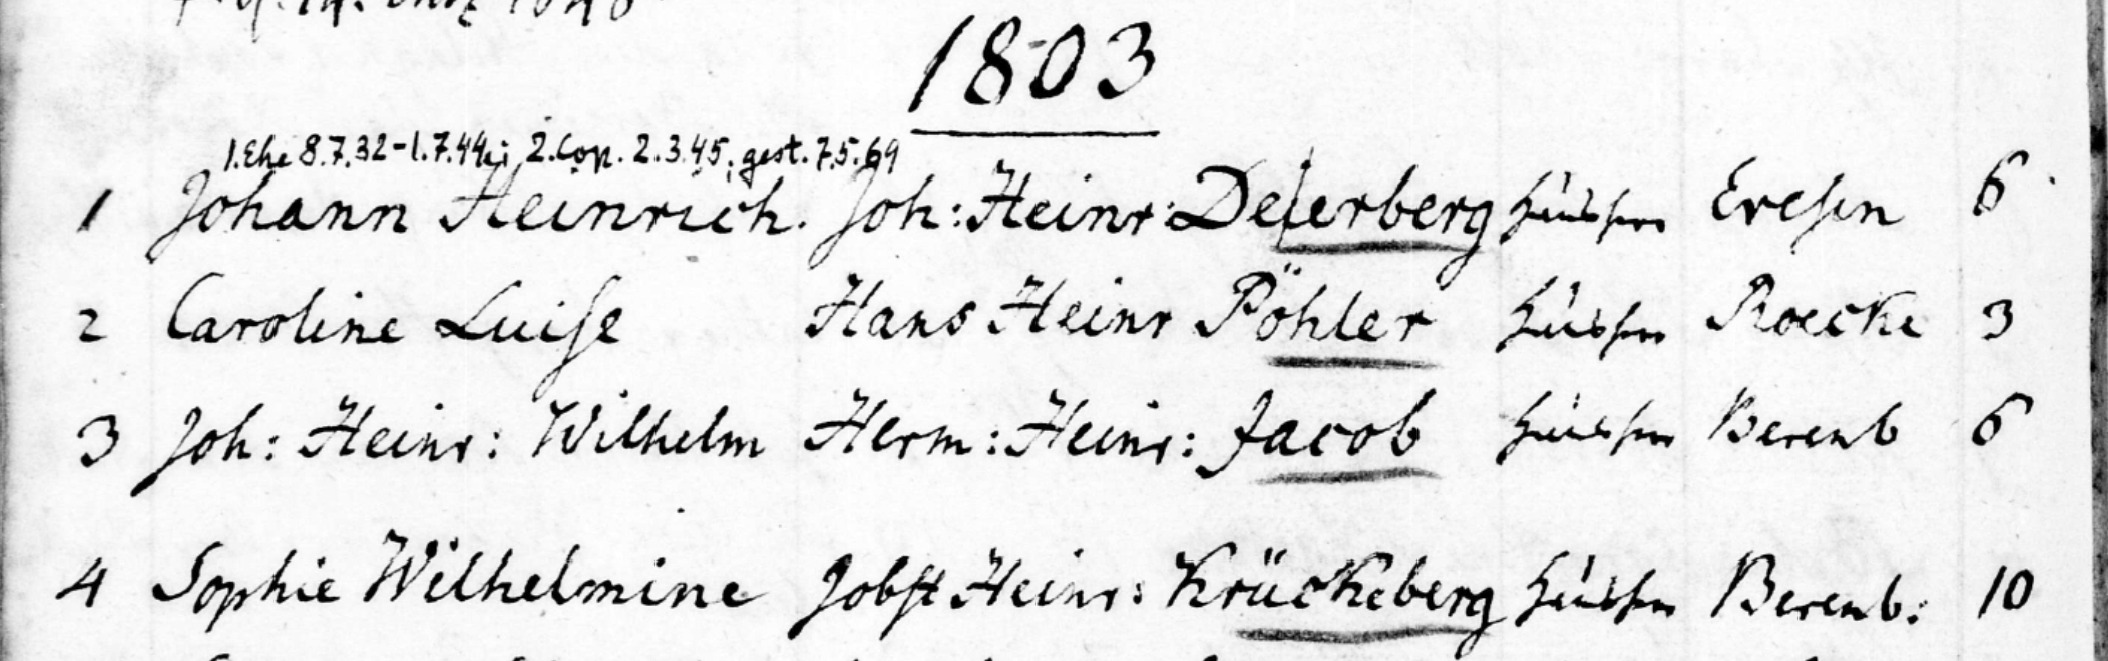 1803
1. Ehe 8.7.32-1.7.44 2. Cop. 2.3.45; gest. 7.5.69
1 Johann Heinrich. Joh: Heinr: Deierberg Häusler Evesen 6
2 Caroline Luise Hans Heinr Pöhler Häusler Roecke 3
3 Joh: Heinr: Wilhelm Herm: Heinr: Jacob Häusler Berenb 6
4 Sophie Wilhelmine Jobst Heinr: Krückeberg Häusler Berenb: 10